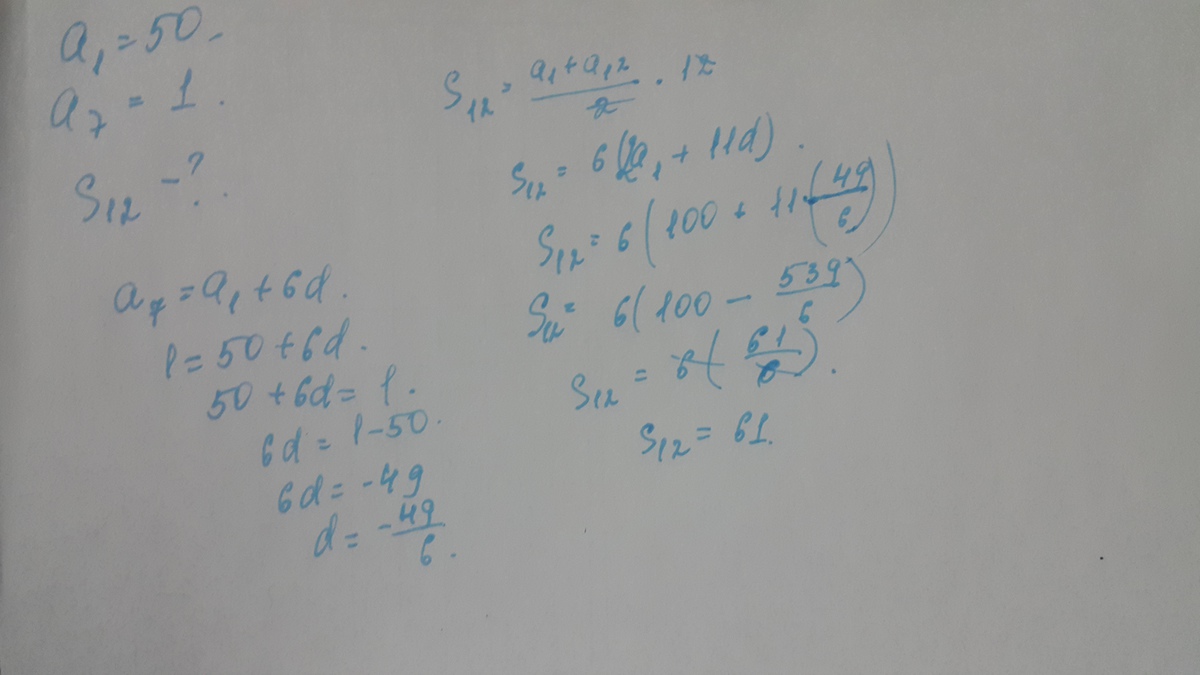 a₁ = 50.
a₇ = 1.
S₁₂ - ?.
a₇ = a₁ + 6d.
1 = 50 + 6d.
50 + 6d = 1.
6d = 1 - 50.
6d = -49
d = -49/6.
S₁₂ = (a₁ + a₁₂)/2 · 12
S₁₂ = 6(2a₁ + 11d).
S₁₂ = 6(100 + 11·(-49/6))
S₁₂ = 6(100 - 539/6)
S₁₂ = 6(61/6).
S₁₂ = 61.